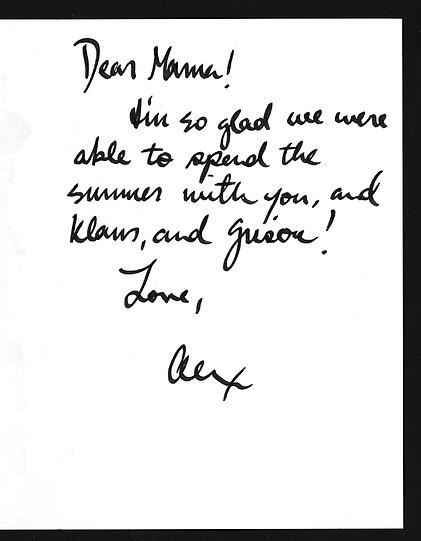 Dear Mama!
I'm so glad we were
able to spend the
summer with you, and
Klaus, and Grison!
Love,
Alex